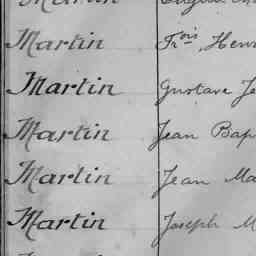 Martin
Martin Frois Henri
Martin Gustave Je
Martin Jean Bap
Martin Jean Ma
Martin Joseph M